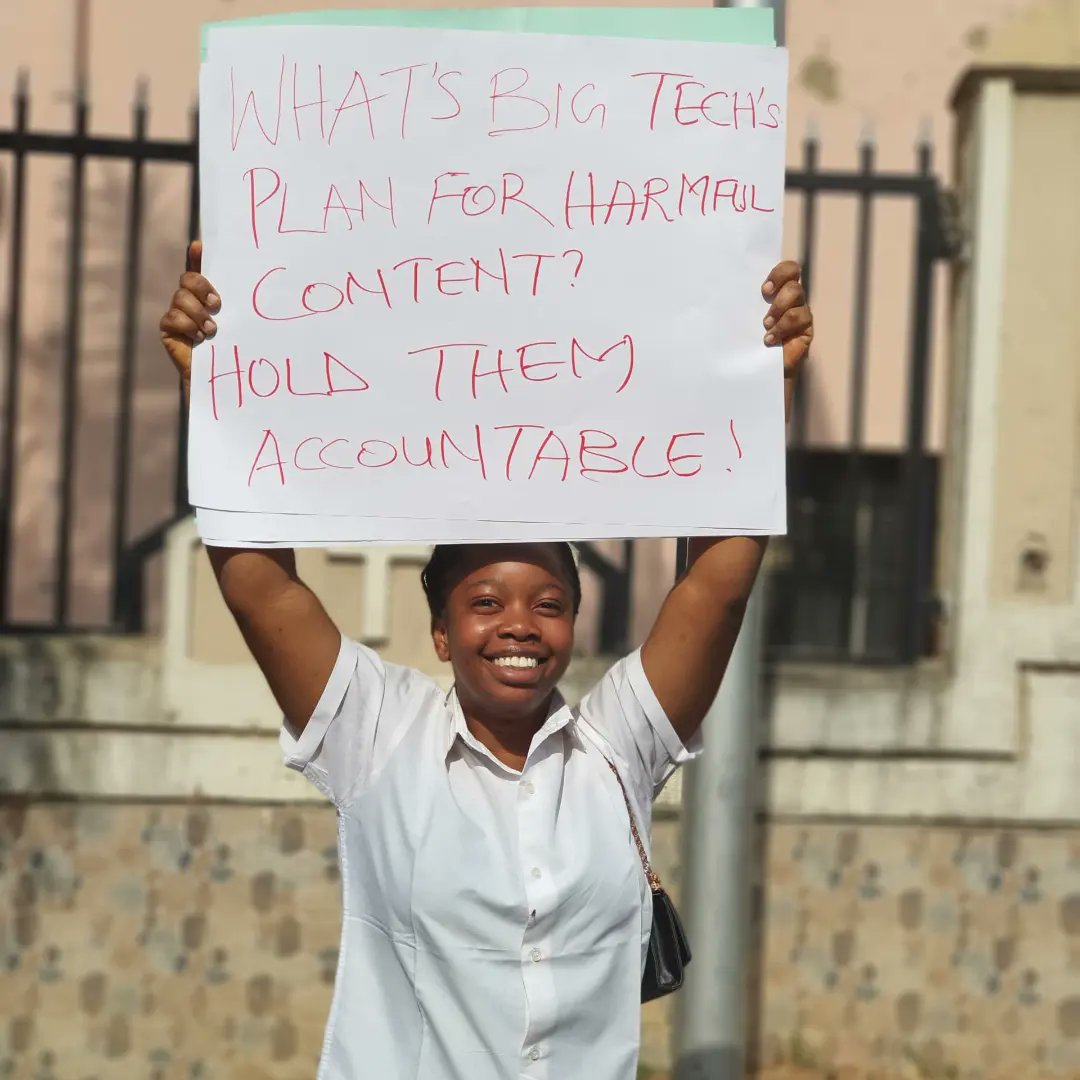 WHAT'S BIG TECH'S
PLAN FOR HARMFUL
CONTENT?
HOLD THEM
ACCOUNTABLE!